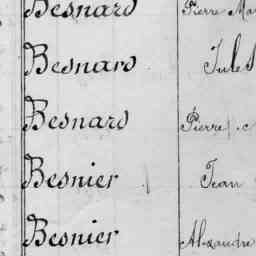 Besnard Pierre Ma
Besnard Jules
Besnard Pierre
Besnier Jean
Besnier Alexandre